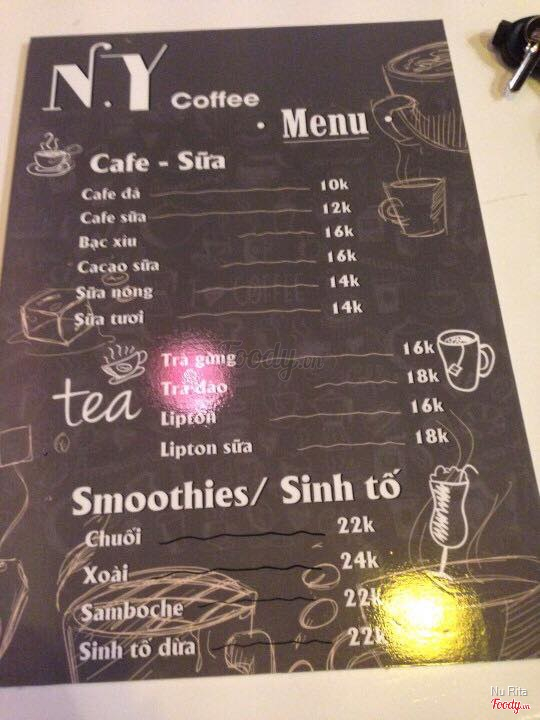 N.Y Coffee
Menu
Cafe - Sữa
Cafe đá 10k
Cafe sữa 12k
Bạc xỉu 16k
Cacao sữa 16k
Sữa nóng 14k
Sữa tươi 14k
tea
Trà gừng 16k
Trà đào 18k
Lipton 16k
Lipton sữa 18k
Smoothies/ Sinh tố
Chuối 22k
Xoài 24k
Samboche 22k
Sinh tố dừa 22k
COFFEE
Foody.vn
Nu Rita
Foody.vn